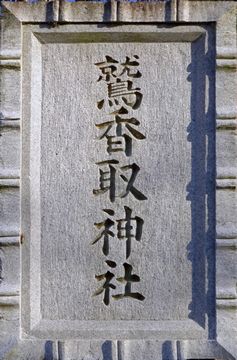 鷲香取神社